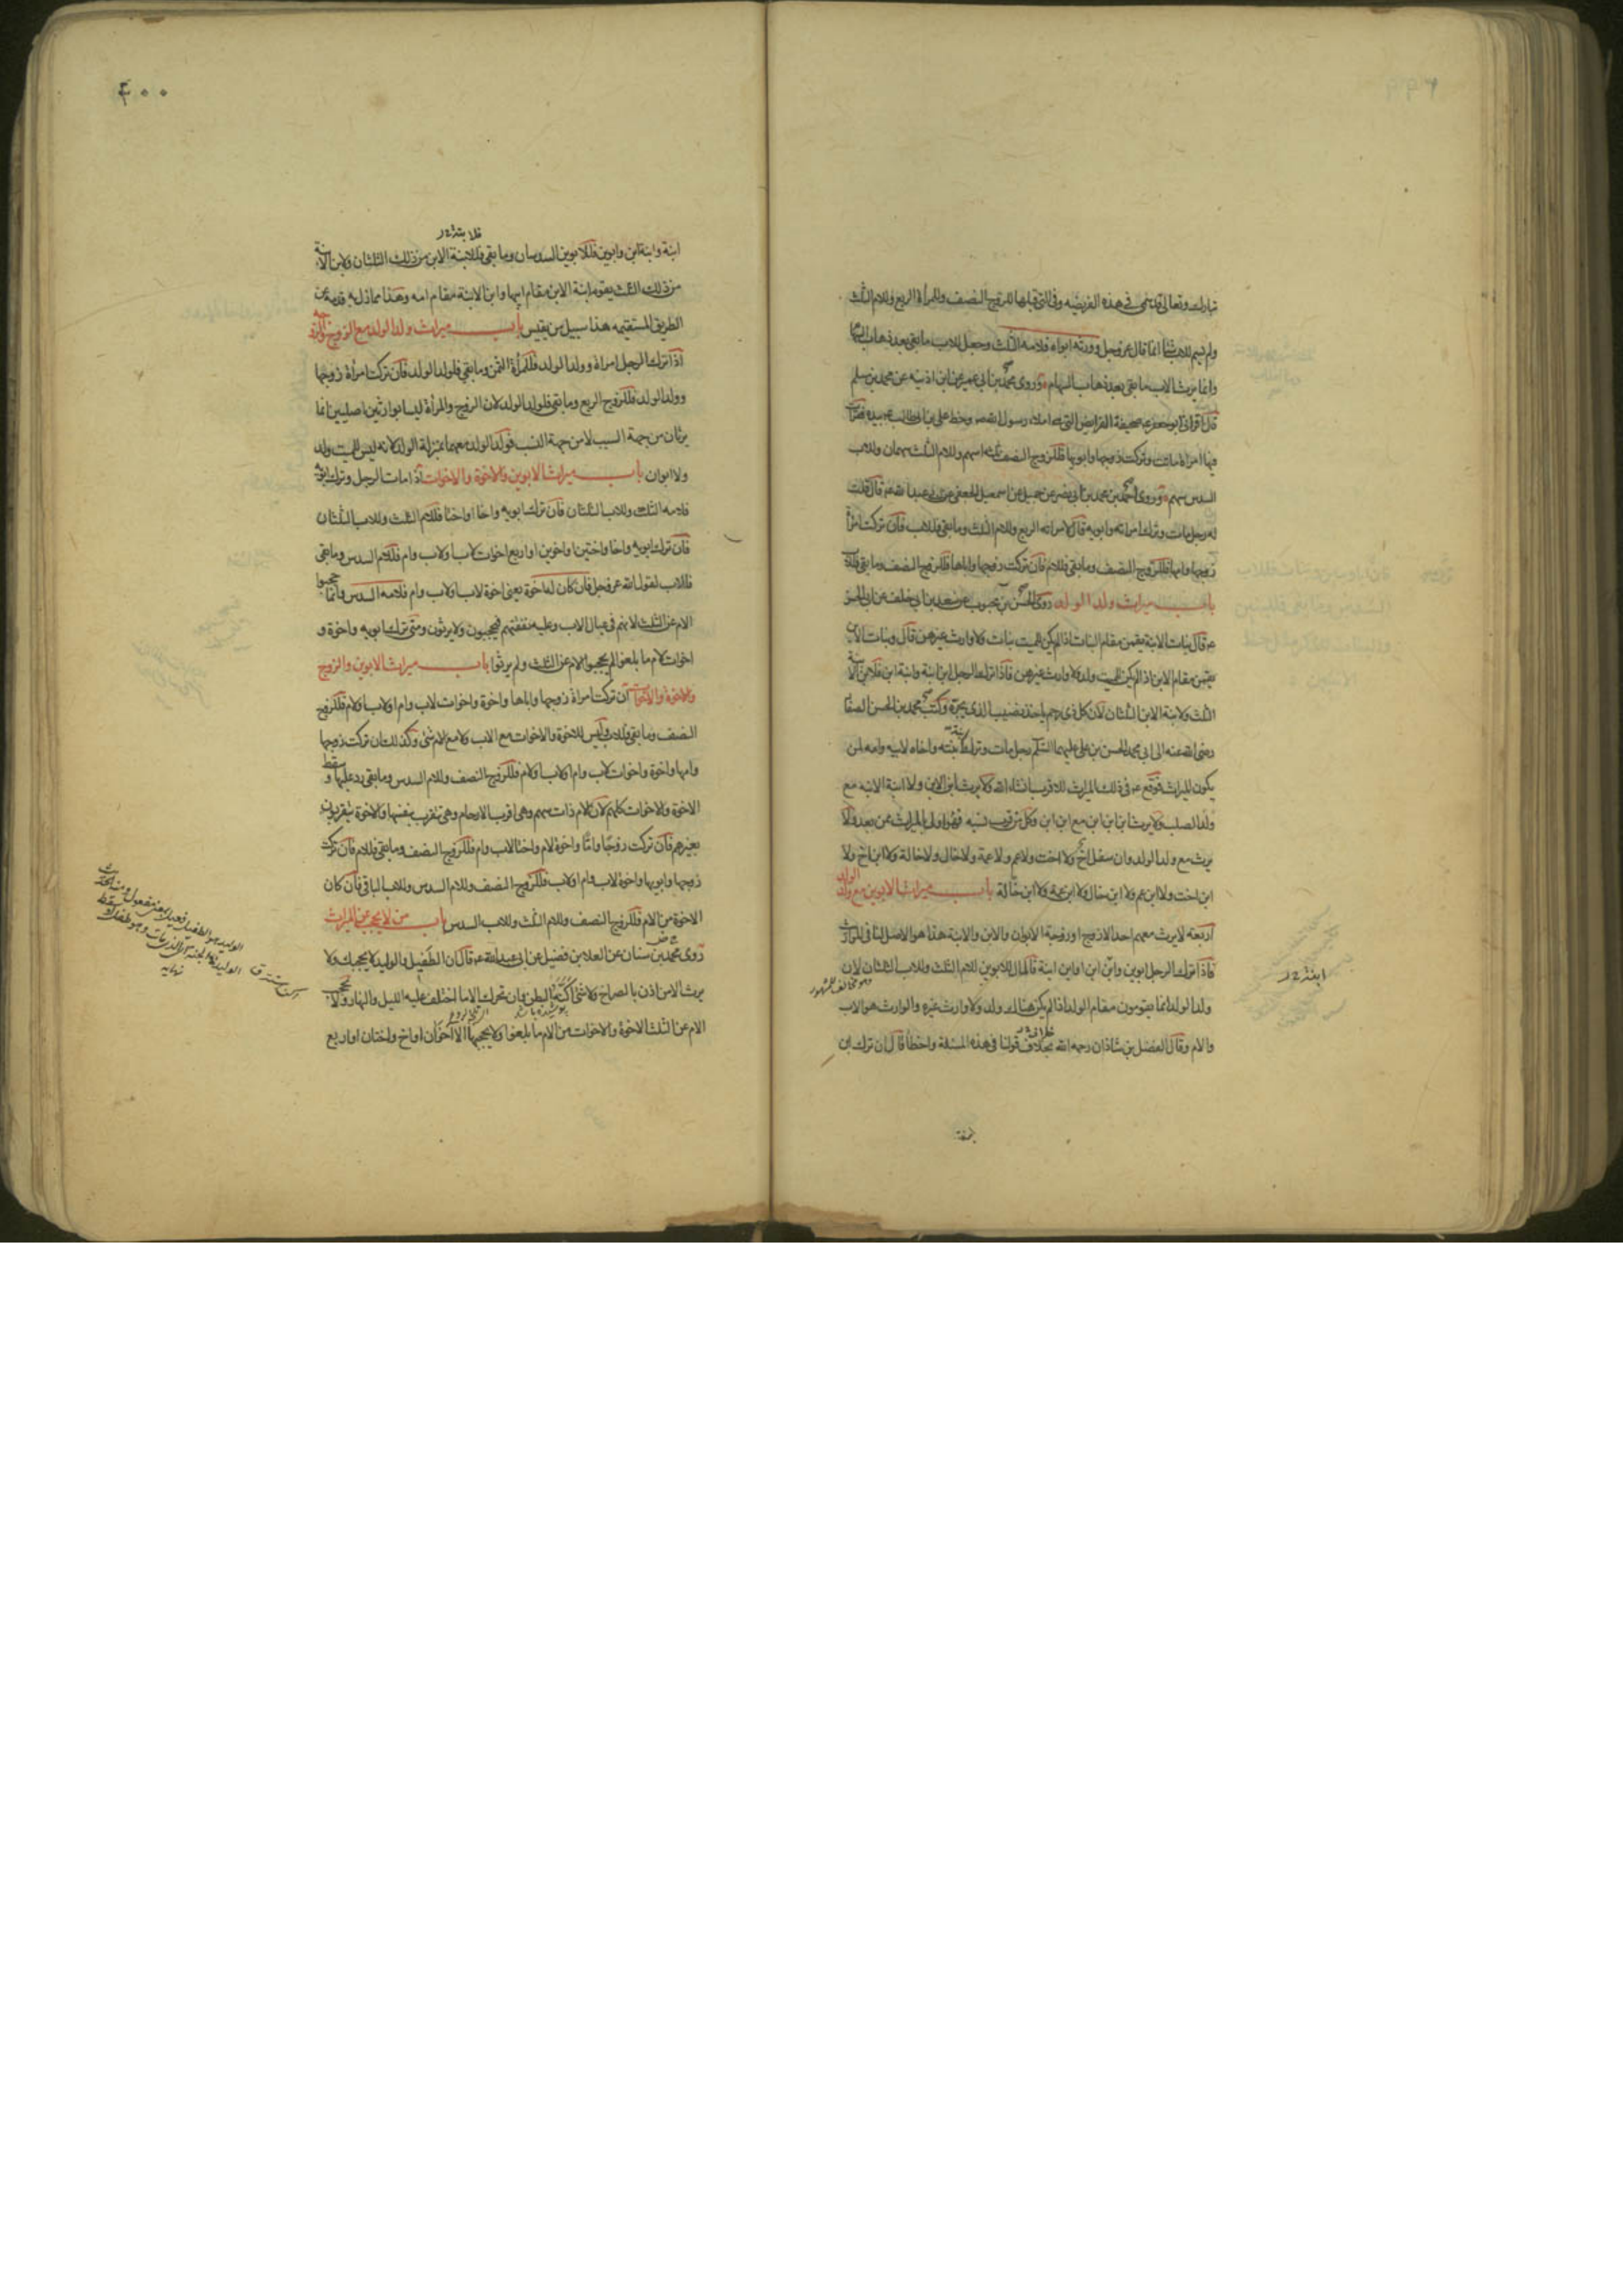 تبارك وتعالى قد سمى فى هذه الفريضه وفى التى قبلها للزوج النصف وللمرأة الربع وللام الثلث
ولم يسم للاب شيئا انما قال عز وجل وورثه ابواه فلامه الثلث وجعل للاب ما بقى بعد ذهاب السهام
وانما يرث الاب ما بقى بعد ذهاب السهام وروى محمد بن ابى عمير عن ابن اذينه عن محمد بن مسلم
قال اقرأنى ابو جعفر ع صحيفة الفرايض التى هى املاء رسول الله ص وخط على بن ابى طالب ع بيده فقرأت
فيها امراة ماتت وتركت زوجها وابويها فللزوج النصف ثلثه اسهم وللام الثلث سهمان وللاب
السدس سهم وروى احمد بن محمد بن ابى نصر عن جميل عن اسمعيل الجعفى عن ابى عبد الله ع قال قلت
له رجل مات وترك امراته وابويه قال لامراته الربع وللام الثلث وما بقى فللاب فان تركت امرأة
زوجها وامها فللزوج النصف وما بقى فللام فان تركت زوجها واباها فللزوج النصف وما بقى فللاب
باب ميراث ولد الولد روى الحسن بن محبوب عن سعد بن ابى خلف عن ابى الحسن
ع قال بنات الابنة يقمن مقام البنات اذا لم يكن للميت بنات ولا وارث غيرهن قال وبنات الابن
يقمن مقام الابن اذا لم يكن للميت ولد ولا وارث غيرهن فاذا ترك الرجل ابن ابنة وابنة ابن فلابن الابنة
الثلث ولابنة الابن الثلثان لان كل ذى رحم ياخذ نصيب الذى يجره وكتب محمد بن الحسن الصفار
رضى الله عنه الى ابى محمد الحسن بن على عليهما السلم رجل مات وترك ابنة بنته واخاه لابيه وامه لمن
يكون الميراث فوقع ع فى ذلك الميراث للاقرب انشاء الله ولا يرث ابن الابن ولا ابنة الابنه مع
ولد الصلب ولا يرث ابن ابن ابن مع ابن ابن وكل من قرب نسبه فهو اولى بالميراث ممن بعد ولا
يرث مع ولد الولد وان سفل اخ ولا اخت ولا عم ولا عمة ولا خال ولا خالة ولا ابن اخ ولا
ابن اخت ولا ابن عم ولا ابن خال ولا ابن عمة ولا ابن خالة باب ميراث الابوين مع ولد الولد
اربعه لا يرث معهم احد الا زوج او زوجة الابوان والابن والابنة هذا هو الاصل لنا فى المواريث
فاذا ترك الرجل ابوين وابن ابن او ابن ابنة فالمال للابوين للام الثلث وللاب الثلثان لان
وهو مخالف للمشهور
ولد الولد انما يقومون مقام الولد اذا لم يكن هناك ولد ولا وارث غيره والوارث هو الاب
والام وقال الفضل بن شاذان رحمه الله بخلاف قولنا فى هذه المسئلة واخطأ قال ان ترك ابن
٤٠٠
ابنة وابنة ابن وابوين فللابوين السدسان وما بقى فلابنة الابن من ذلك الثلثان ولابن الابنة
من ذلك الثلث يقوم ابنة الابن مقام ابيها وابن الابنة مقام امه وهذا مما زل به قدمه عن
الطريق المستقيمه هذا سبيل من يقيس باب ميراث ولد الولد مع الزوج والزوجه
اذا ترك الرجل امراة وولد الولد فللمرأة الثمن وما بقى فلولد الولد فان تركت امرأة زوجها
وولد الولد فللزوج الربع وما بقى فلولد الولد لان الزوج والمرأة ليسا بوارثين اصليين انما
يرثان من جهة السبب لا من جهة النسب فولد الولد معهما بمنزلة الولد لانه ليس للميت ولد
ولا ابوان باب ميراث الابوين والاخوة والاخوات اذا مات الرجل وترك ابويه
فلامه الثلث وللاب الثلثان فان ترك ابويه واخا او اختا فللام الثلث وللاب الثلثان
فان ترك ابويه واخا واختين او اخوين او اربع اخوات لاب او لاب وام فللام السدس وما بقى
فللاب لقول الله عز وجل فان كان له اخوة يعنى اخوة لاب او لاب وام فلامه السدس وانما حجبوا
الام عن الثلث لانهم فى عيال الاب وعليه نفقتهم فيحجبون ولا يرثون ومتى ترك ابويه واخوة و
اخوات لام ما بلغوا لم يحجبوا الام عن الثلث ولم يرثوا باب ميراث الابوين والزوج
والاخوة والاخوات ان تركت امراة زوجها واباها واخوة واخوات لاب وام او لاب او لام فللزوج
النصف وما بقى فللاب وليس للاخوة والاخوات مع الاب ولا مع الام شئ وكذلك ان تركت زوجها
وامها واخوة واخوات لاب وام او لاب او لام فللزوج النصف وللام السدس وما بقى رد عليها وسقط
الاخوة والاخوات كلهم لان الام ذات سهم وهى اقرب الارحام وهى تتقرب بنفسها والاخوة يتقربون
بغيرهم فان تركت زوجا واما واخوة لام واختا لاب وام فللزوج النصف وما بقى فللام فان تركت
زوجها وابويها واخوة لاب وام او لاب فللزوج النصف وللام السدس وللاب الباقى فان كان
الاخوة من الام فللزوج النصف وللام الثلث وللاب السدس باب من لا يحجب عن الميراث
روى محمد بن سنان عن العلا بن فضيل عن ابى عبد الله ع قال ان الطفيل والوليد لا يحجبك ولا
يرث الا من اذن بالصراخ ولا شئ اكنه البطن وان تحرك الا ما اختلف عليه الليل والنهار ولا يحجب
الام عن الثلث الاخوة والاخوات من الام ما بلغوا ولا يحجبها الا اخوان او اخ واختان او اربع